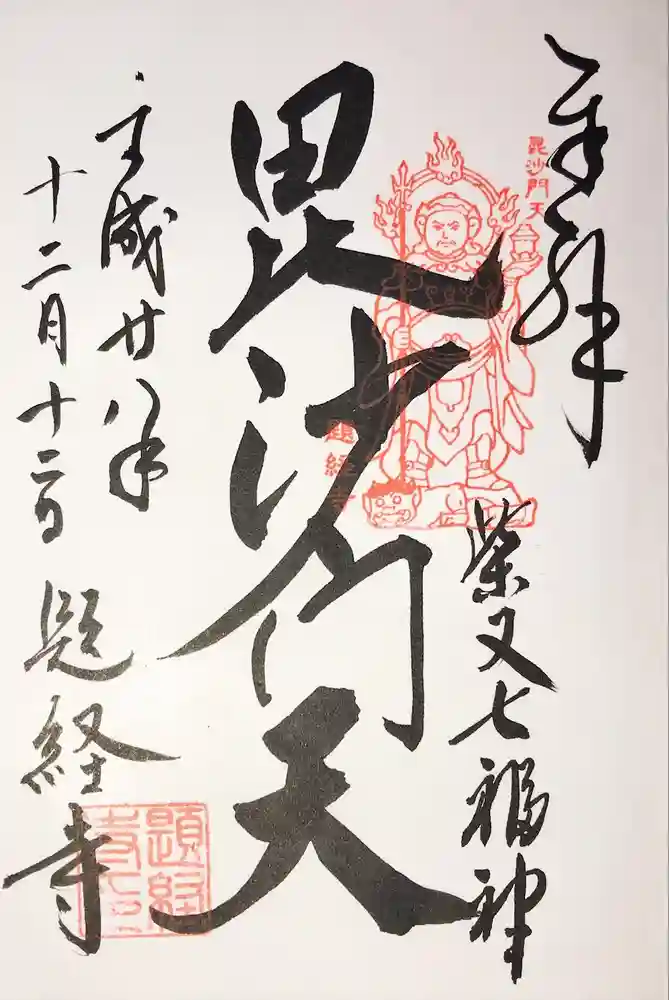 奉拝
毘沙門天
柴又七福神
毘沙門天
題経寺
平成廿八年
十二月十二日
題経寺
題経寺印